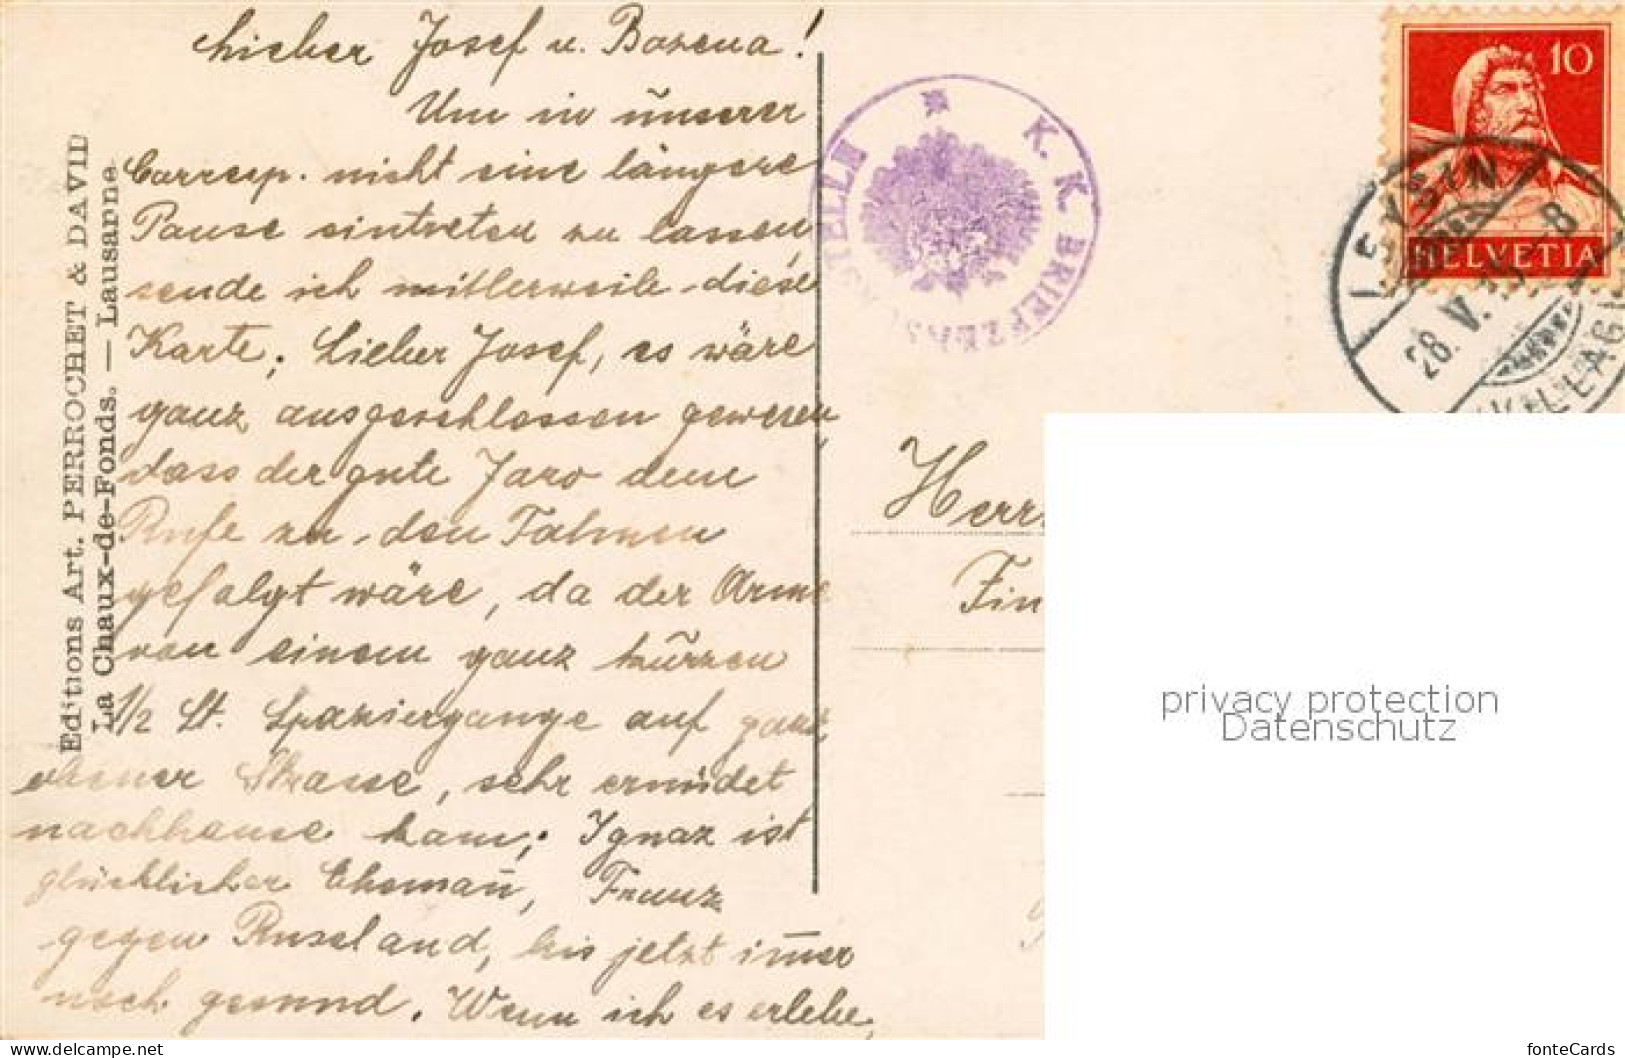 Lieber Josef u. Bozena!
Um in unserer
Corresp. nicht eine längere
Pause eintreten zu lassen
sende ich mittlerweile diese
Karte; Lieber Josef, es wäre
ganz ausgeschlossen gewesen,
dass der gute Jaro dem
Rufe zu den Fahnen
gefolgt wäre, da der Arme
von einem ganz kurzen
1/2 St. Spaziergange auf ganz
ebener Strasse, sehr ermüdet
nachhause kam; Ignaz ist
glücklicher Ehemañ, Franz
gegen Russland, bis jetzt im̄er
noch gesund. Wenn ich es erlebe,
Editions Art. PERROCHET & DAVID
La Chaux-de-Fonds. — Lausanne
K. K. BRIEFZENS
10
HELVETIA
LEYSIN
28. V. 15 - 8
Herr
Fin
privacy protection
Datenschutz
www.ansichtskartenversand.com
fonteCards